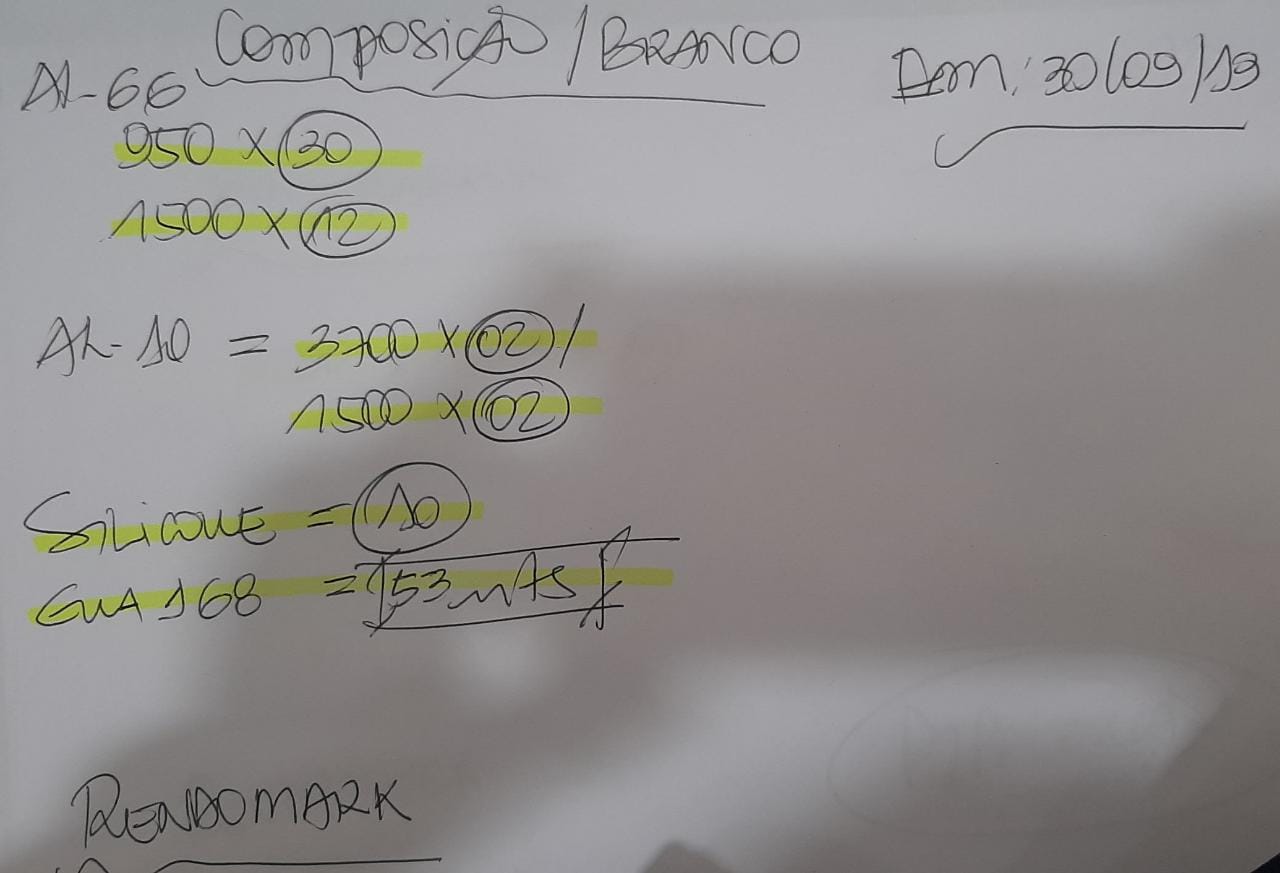 Composição / BRANCO
Dom: 30/09/19
AL-66
950 X 30
1500 X 12
AL-10 = 3700 X 02 /
1500 X 02
SILICONE = 10
GUA 168 = 53 mts
RENDOMARK